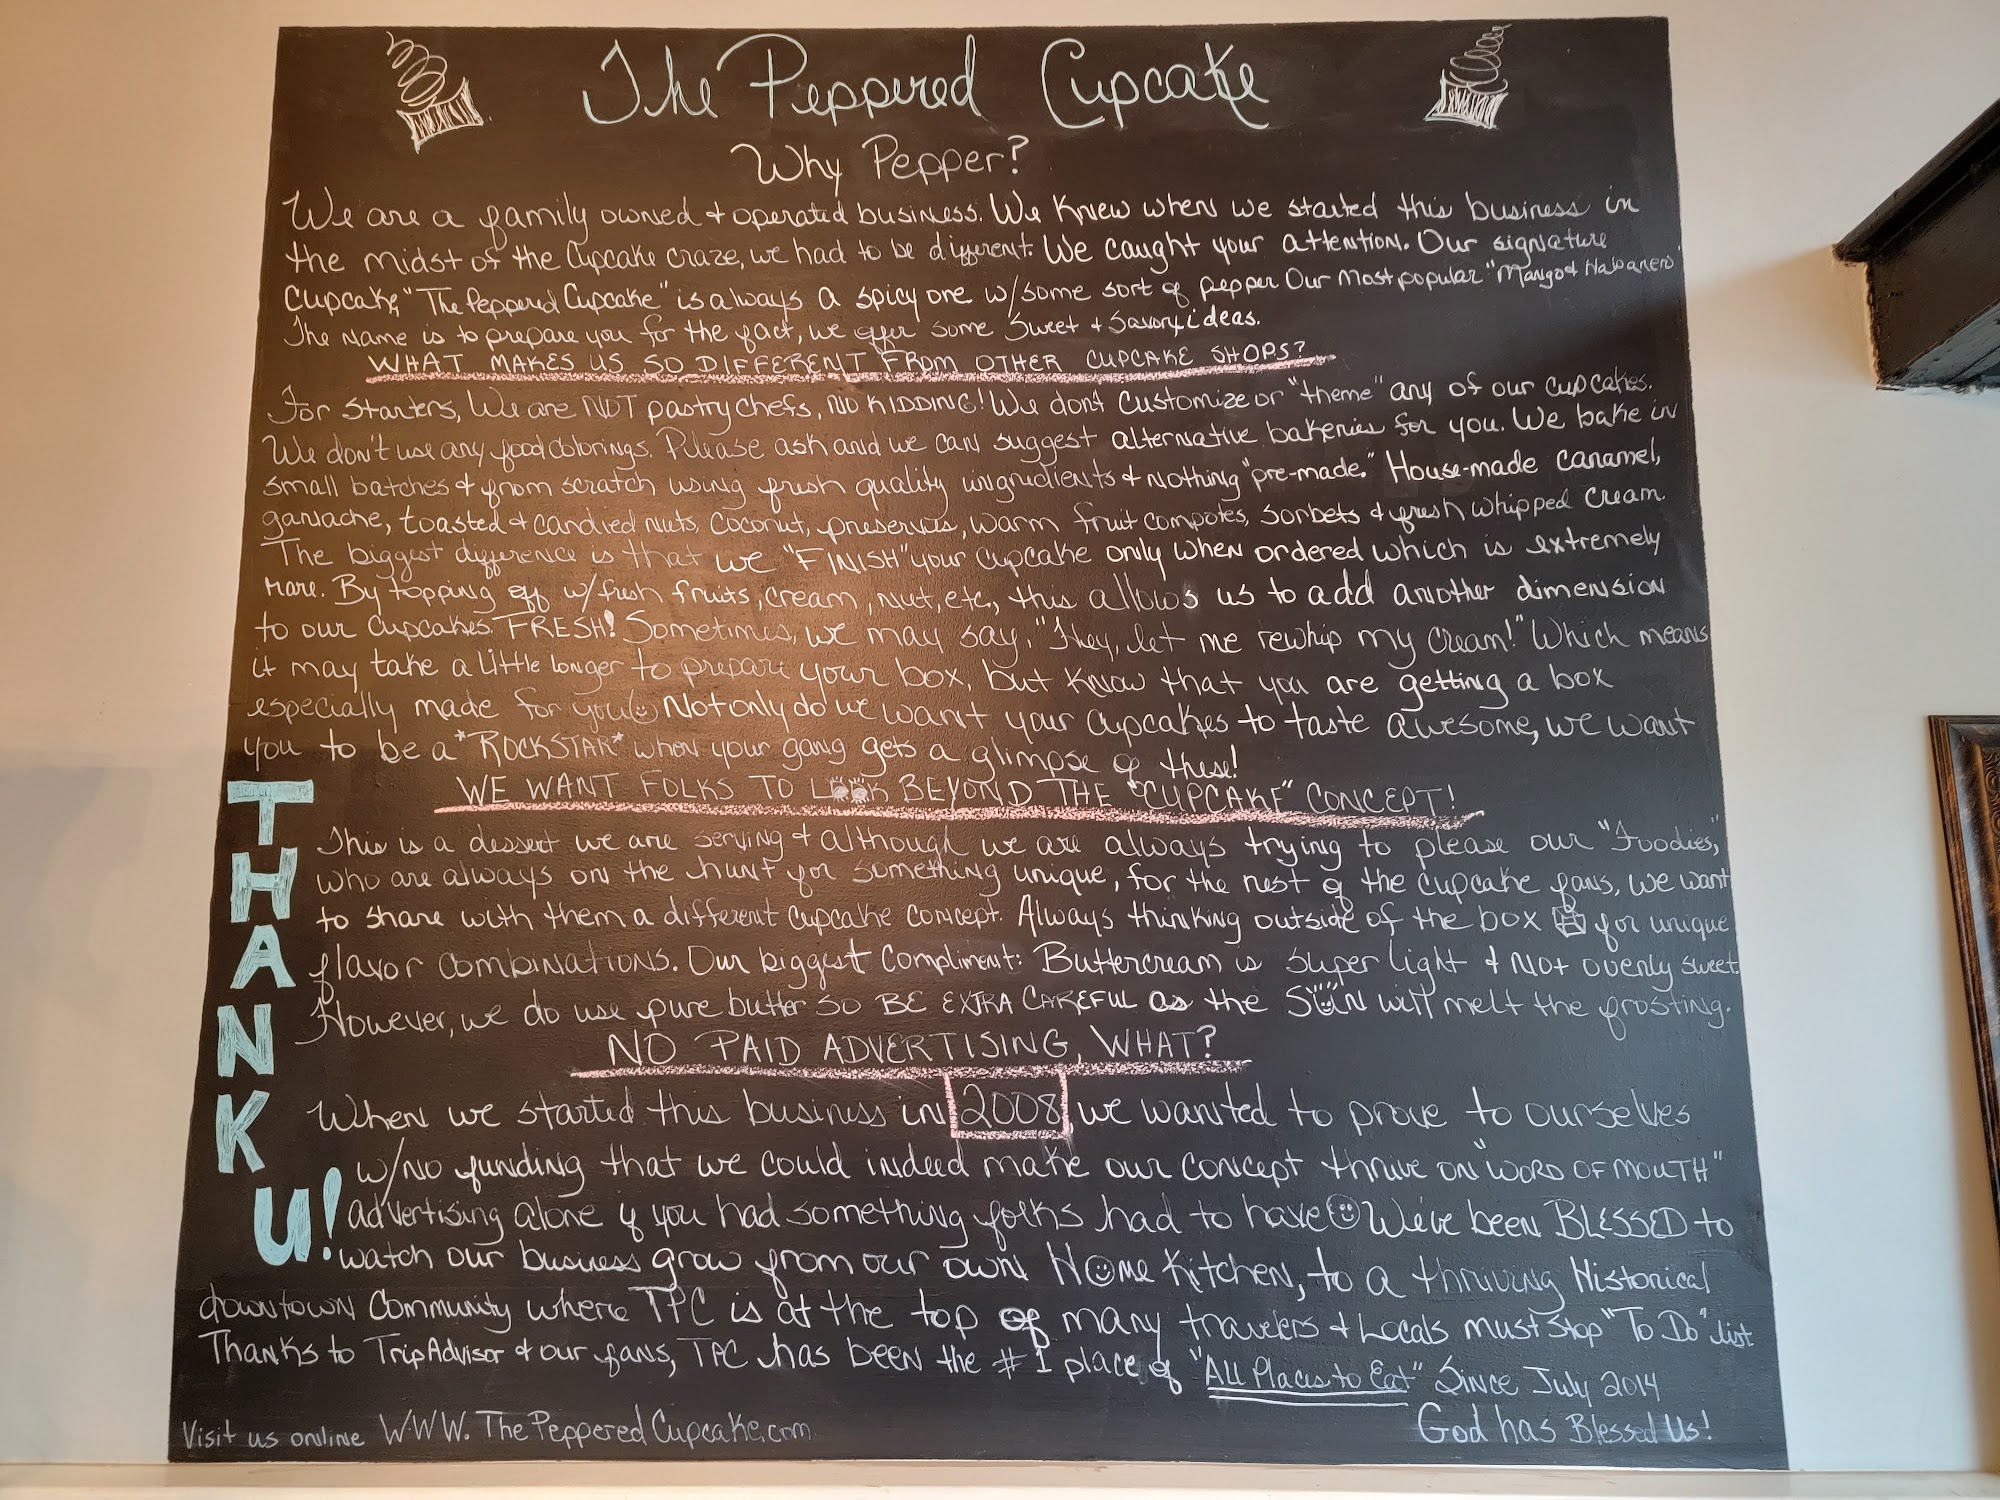 The Peppered Cupcake
Why Pepper?
We are a family owned + operated business. We knew when we started this business in
the midst of the Cupcake craze, we had to be different. We caught your attention. Our signature
Cupcake, "The Peppered Cupcake" is always a spicy one w/some sort of pepper Our most popular "Mango + Habanero"
The name is to prepare you for the fact, we offer some Sweet + Savory ideas.
WHAT MAKES US SO DIFFERENT FROM OTHER CUPCAKE SHOPS?
For starters, We are NOT pastry chefs, NO KIDDING! We don't customize or "theme" any of our cupcakes.
We don't use any food colorings. Please ask and we can suggest alternative bakeries for you. We bake in
small batches + from scratch using fresh quality ingredients + nothing "pre-made." House-made caramel,
ganache, toasted + candied nuts, coconut, preserves, warm fruit compotes, sorbets + fresh whipped cream.
The biggest difference is that we "FINISH" your cupcake only when ordered which is extremely
rare. By topping off w/fresh fruits, cream, nut, etc., this allows us to add another dimension
to our cupcakes. FRESH! Sometimes, we may say, "Hey, let me rewhip my cream!" Which means
it may take a little longer to prepare your box, but know that you are getting a box
especially made for you! Not only do we want your cupcakes to taste awesome, we want
you to be a *ROCKSTAR* when your gang gets a glimpse of these!
WE WANT FOLKS TO LOOK BEYOND THE "CUPCAKE" CONCEPT!
This is a dessert we are serving + although we are always trying to please our "Foodies,"
who are always on the hunt for something unique, for the rest of the cupcake fans, we want
to share with them a different cupcake concept. Always thinking outside of the box for unique
flavor combinations. Our biggest compliment: Buttercream is super light + not overly sweet.
However, we do use pure butter so BE EXTRA CAREFUL as the SUN will melt the frosting.
NO PAID ADVERTISING, WHAT?
When we started this business in 2008 we wanted to prove to ourselves
w/no funding that we could indeed make our concept thrive on "WORD OF MOUTH"
advertising alone if you had something folks had to have We've been BLESSED to
watch our business grow from our own Home Kitchen, to a thriving Historical
downtown community where TPC is at the top of many travelers + Locals must stop "To Do" list
Thanks to TripAdvisor + our fans, TPC has been the #1 place of "All Places to Eat" Since July 2014
THANK U!
Visit us online WWW.ThePepperedCupcake.com
God has Blessed Us!